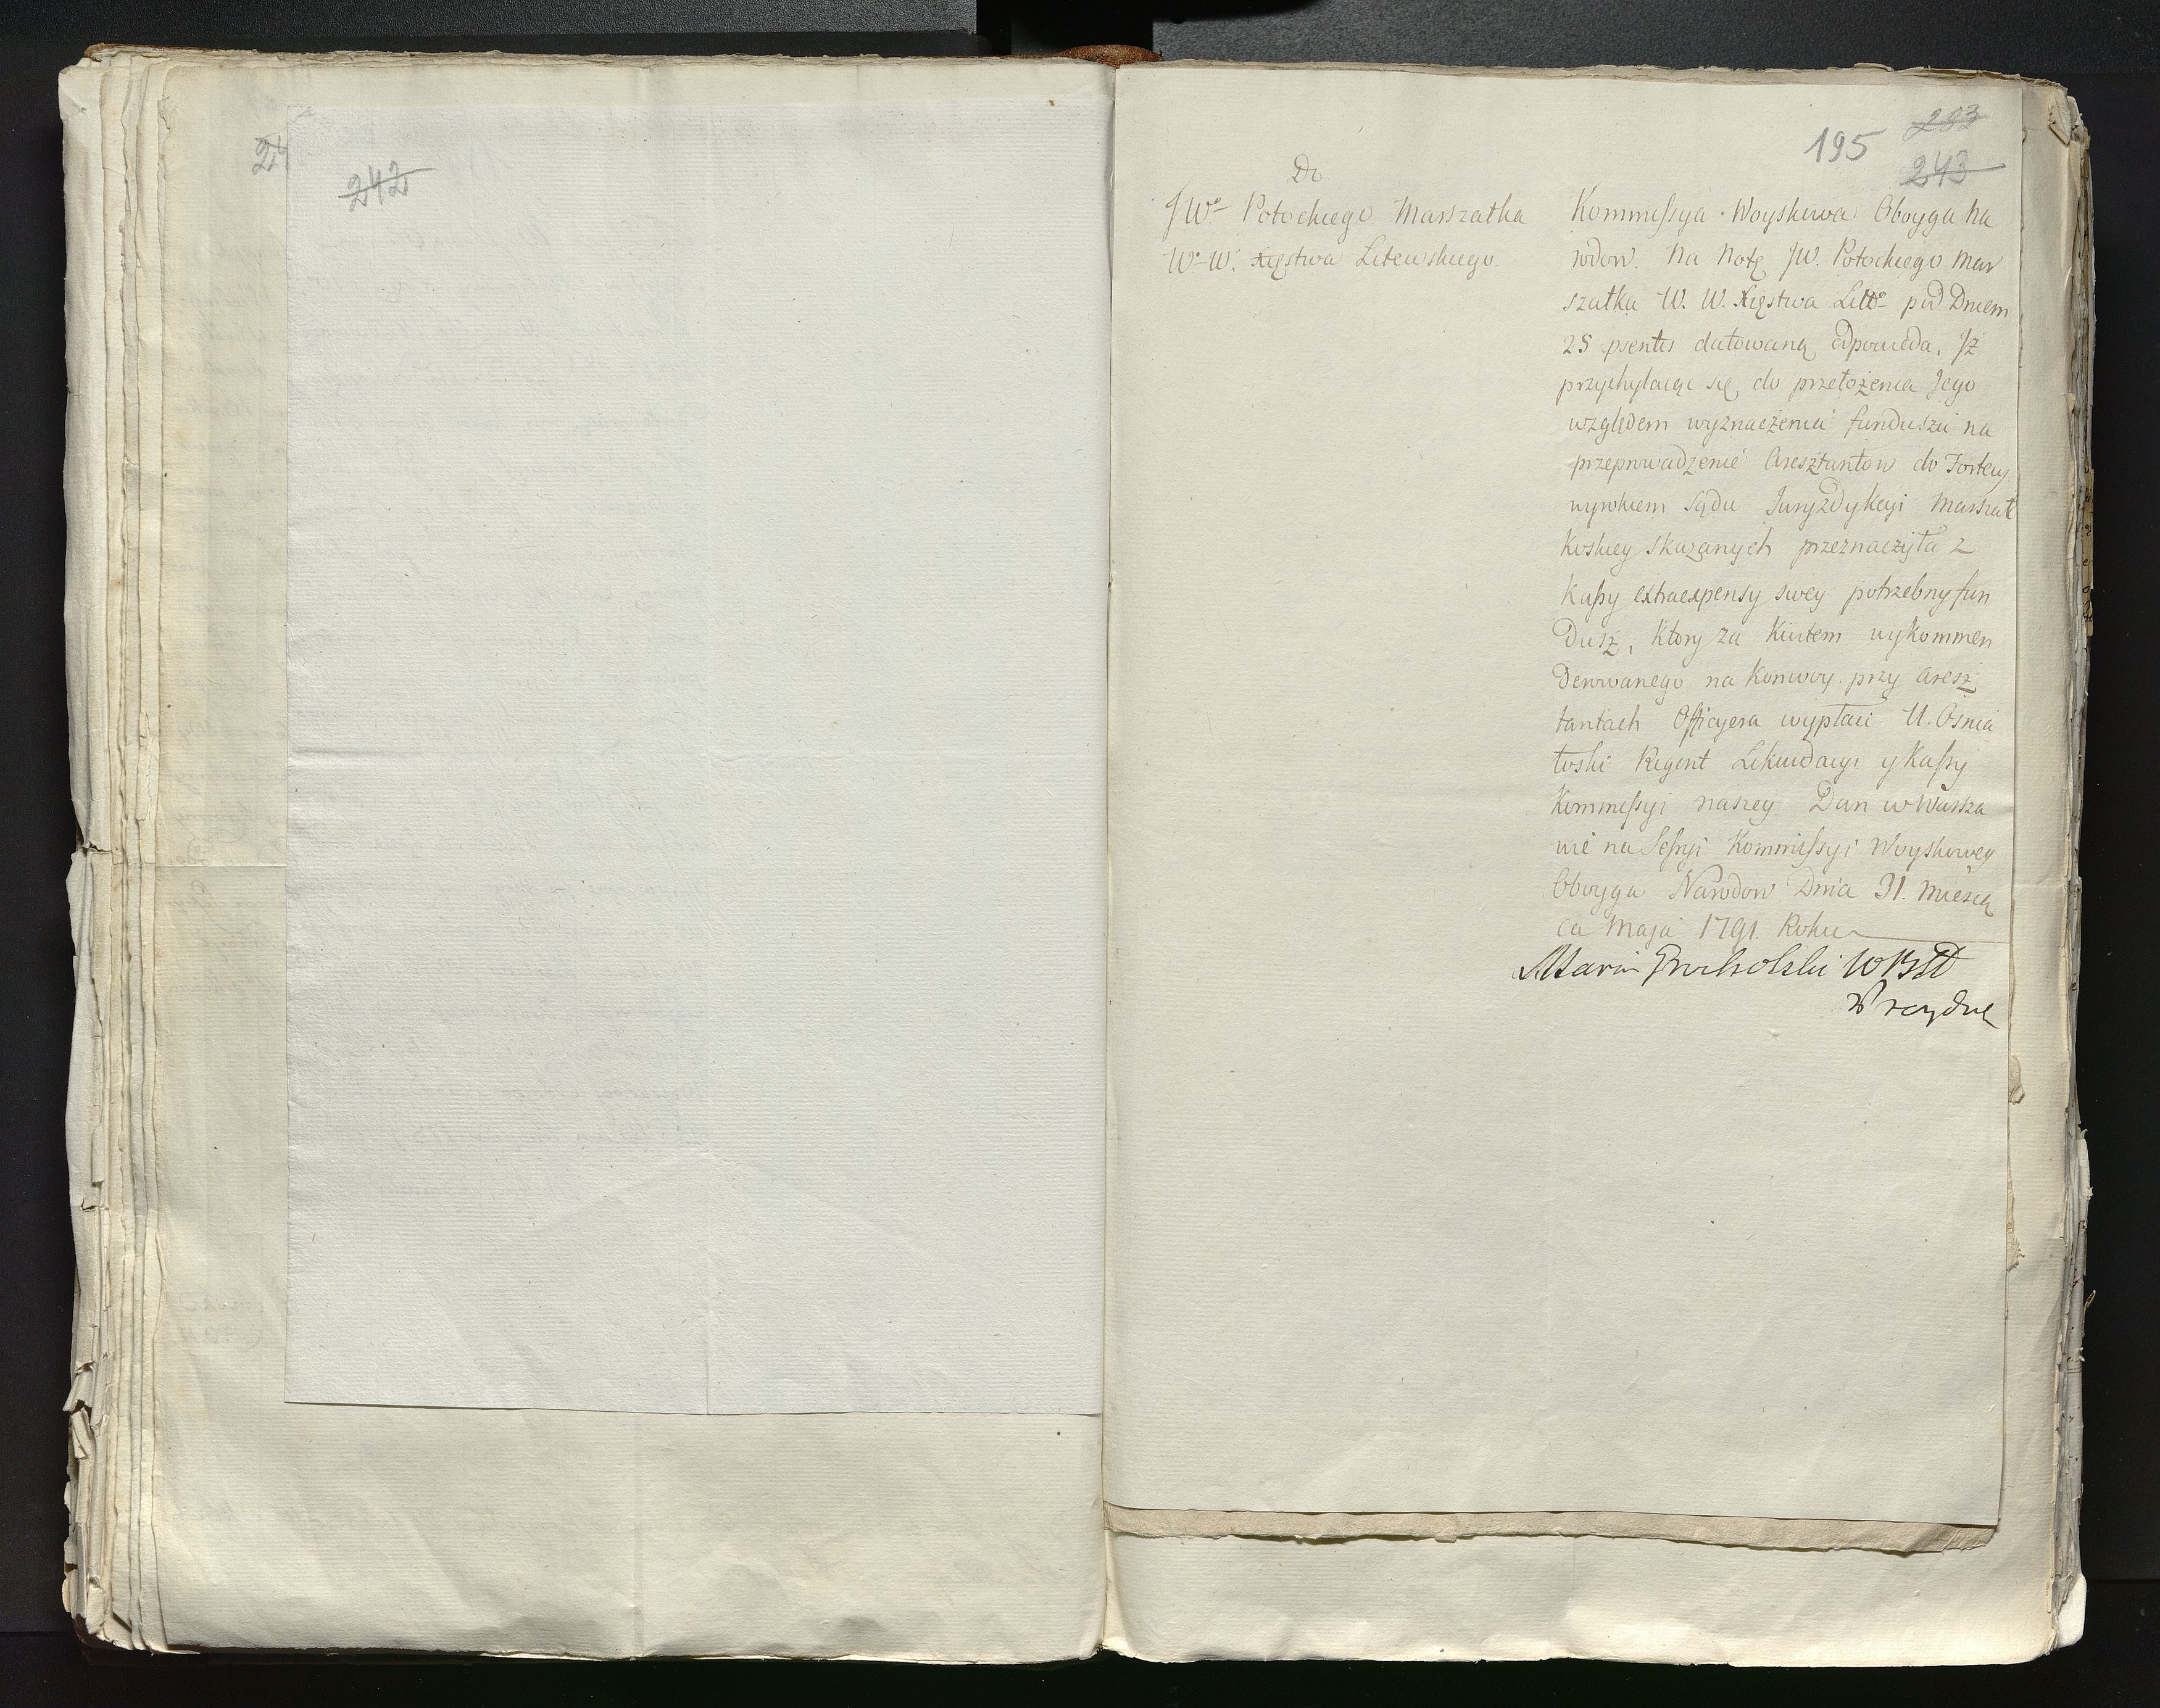 24
242
195
203
243
Do
JWo Potockiego Marszałka
W. W. Xięstwa Litewskiego
Kommissya Woyskowa Oboyga Na
rodow. Na Notę JW. Potockiego Mar
szałka W. W. Xięstwa Litto pod Dniem
25 psentis datowaną odpowieda, Jż
przychylaiąc się do przełożenia Jego
względem wyznaczenia funduszu na
przeprowadzenie Aresztantow do Fortecy
wyrokiem Sądu Juryzdykcyi Marszał
koskiey Skazanych przeznaczyła z
Kassy extraexpensy swey potrzebny fun
dusz, Ktory za Kwitem wykommen
derowanego na Konwoy przy Aresz
tantach Officyera wypłaci U. Osmia
łoski Regent Likwidacyi y Kassy
Kommissyi naszey Dan w Warsza
wie na Sessyi Kommissyi Woyskowey
Oboyga Narodow Dnia 31. Miesią
ca Maja 1791. Roku
Grocholski WBP
Prezydue